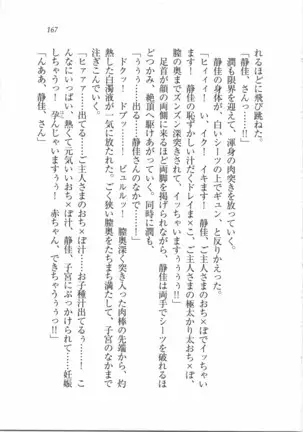 167
れるほどに飛び跳ねた。
「静佳、さんっ……!」
潤も限界を迎えて、渾身の肉突きを放っていく。
静佳の身体が、白いシーツの上でギュン、と反りかえった。
「ヒィィィ! い、イク! イキます! 静佳、ご主人さまのおち×ぽでイッちゃい
ますぅ! 静佳の恥ずかしい汁だくドレイま×こ、ご主人さまの極太かり太おち×ぽ、
膣の奥までズンズン深突きされて、イッちゃいますぅぅぅぅ!!」
足首が顔の両側に来るほど両脚を掲げられながら、静佳は両手でシーツを破るほ
どつかみ、絶頂へ駆けあがっていく。同時に潤も、
「くぅぅっ……出る……静佳さんのなかで……っ!」
ドクッ! ドプッ……! ビュルルッ! 膣奥深く突き入った肉棒の先端から、灼
熱した白濁液が一気に放たれた。ごく狭い膣奥をたちまち満たして、子宮のなかまで
注ぎこんでいく。
「ヒァァァ……出てるぅ……ご主人さまのおち×ぽ汁……お子種汁出てるぅ……! こ
なにいっぱい、熱くて元気いいおち×ぽ汁、静佳、子宮にぶっかけられて……妊娠
しちゃうぅ! 孕んじゃいますぅぅ! 赤ちゃん、できちゃうぅぅうっ!!」
「んああ、静佳、さん」